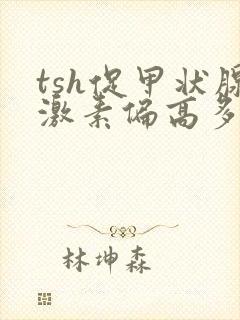 tsh促甲状腺
激素偏高多
林坤森